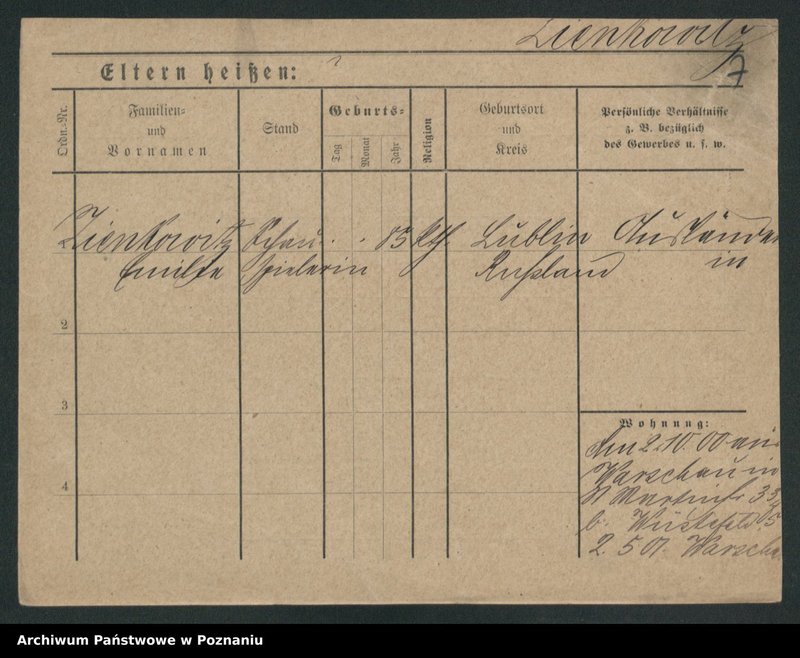 Zienkowitz
7
Eltern heißen:
Ordn.-Nr.
Familien-
und
Vornamen
Stand
Geburts-
Tag
Monat
Jahr
Religion
Geburtsort
und
Kreis
Persönliche Verhältnisse
z. B. bezüglich
des Gewerbes u. s. w.
Zienkowitz Schau- 85 kth. Lublin Auslände
Emilie spielerin Rußland in
2
3
4
Wohnung:
Am 2.10.00 aus
Warschau in
St Martinstr 33
b. Wüstefeld
2. 5 01. Warscha
Archiwum Państwowe w Poznaniu